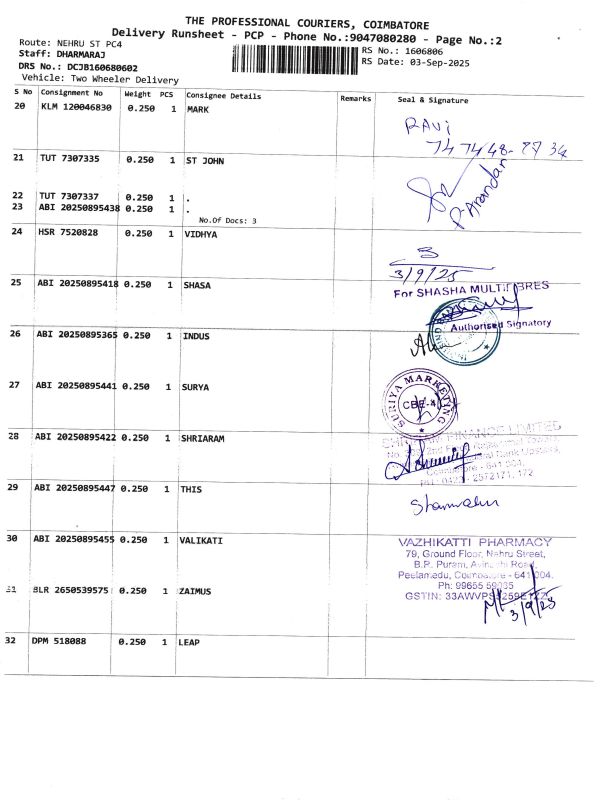 THE PROFESSIONAL COURIERS, COIMBATORE
Delivery Runsheet - PCP - Phone No.:9047080280 - Page No.:2
Route: NEHRU ST PC4
Staff: DHARMARAJ
DRS No.: DCJB160680602
Vehicle: Two Wheeler Delivery
RS No.: 1606806
RS Date: 03-Sep-2025
S No Consignment No Weight PCS Consignee Details Remarks Seal & Signature
20 KLM 120046830 0.250 1 MARK
RAVi
21 TUT 7307335 0.250 1 ST JOHN
22 TUT 7307337 0.250 1 .
23 ABI 20250895438 0.250 1 .
No.Of Docs: 3
24 HSR 7520828 0.250 1 VIDHYA
3/9/25
25 ABI 20250895418 0.250 1 SHASA
For SHASHA MULTIFIBRES
Authorised Signatory
26 ABI 20250895365 0.250 1 INDUS
27 ABI 20250895441 0.250 1 SURYA
SURIYA MARKETING
CBE-4
28 ABI 20250895422 0.250 1 SHRIARAM
FINANCE LIMITED
Coimbatore - 641 004.
29 ABI 20250895447 0.250 1 THIS
30 ABI 20250895455 0.250 1 VALIKATI
VAZHIKATTI PHARMACY
79, Ground Floor, Nehru Street,
B.R. Puram, Avinashi Road,
Peelamedu, Coimbatore - 641 004.
Ph: 99655 59035
31 BLR 2650539575 0.250 1 ZAIMUS
3/9/25
32 DPM 518088 0.250 1 LEAP